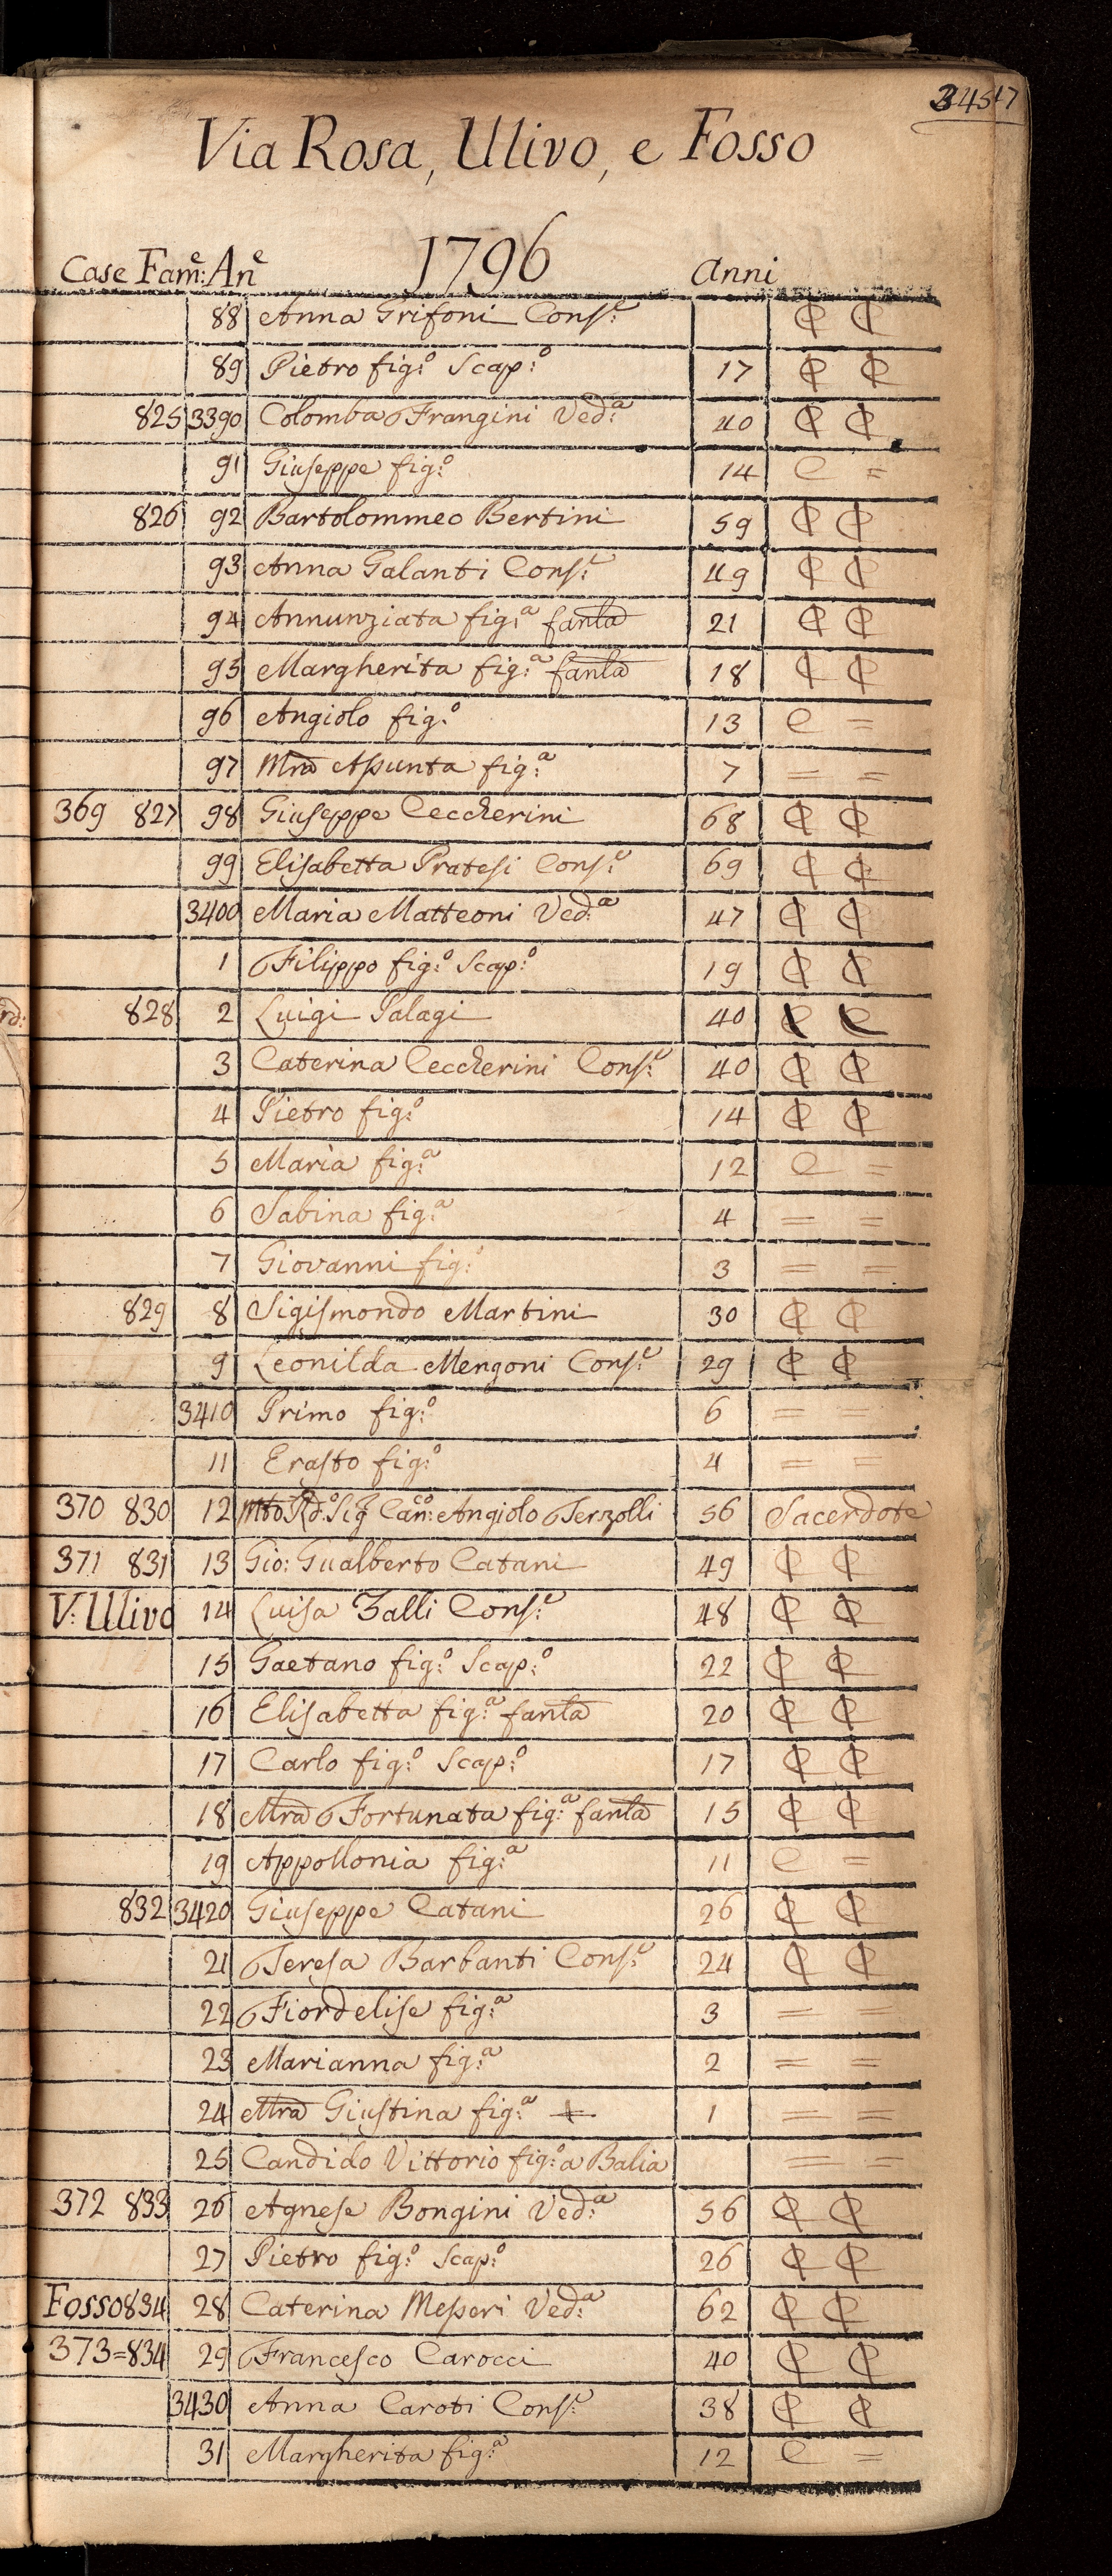 Via Rosa, Ulivo, e Fosso
Case Fam:e An.e 1796 anni
88 Anna Grifoni Cons:e ₵ ₵
89 Pietro fig:o Scap:o 17 ₵ ₵
825 3390 Colomba Frangini Ved:a 40 ₵ ₵
91 Giuseppe fig:o 14 C =
826 92 Bartolommeo Bertini 59 ₵ ₵
93 Anna Galanti Cons:e 49 ₵ ₵
94 Annunziata fig:a fanla 21 ₵ ₵
95 Margherita fig:a fanla 18 ₵ ₵
96 Angiolo fig:o 13 C =
97 Mra Assunta fig:a 7 = =
369 827 98 Giuseppe Ceccherini 68 ₵ ₵
99 Elisabetta Pratesi Cons:e 69 ₵ ₵
3400 Maria Matteoni Ved:a 47 ₵ ₵
1 Filippo fig:o Scap:o 19 ₵ ₵
828 2 Luigi Palagi 40 ₵ ₵
3 Caterina Ceccherini Cons:e 40 ₵ ₵
4 Pietro fig:o 14 ₵ ₵
5 Maria fig:a 12 C =
6 Sabina fig:a 4 = =
7 Giovanni fig:o 3 = =
829 8 Sigismondo Martini 30 ₵ ₵
9 Leonilda Mengoni Cons:e 29 ₵ ₵
3410 Primo fig:o 6 = =
11 Erasto fig:o 4 = =
370 830 12 Mto Rd:o Sig Can:co Angiolo Terzolli 56 Sacerdote
371 831 13 Gio: Gualberto Catani 49 ₵ ₵
V: Ulivo 14 Luisa Zalli Cons:e 48 ₵ ₵
15 Gaetano fig:o Scap:o 22 ₵ ₵
16 Elisabetta fig:a fanla 20 ₵ ₵
17 Carlo fig:o Scap:o 17 ₵ ₵
18 Mra Fortunata fig:a fanla 15 ₵ ₵
19 Appollonia fig:a 11 C =
832 3420 Giuseppe Catani 26 ₵ ₵
21 Teresa Barbanti Cons:e 24 ₵ ₵
22 Fiordelise fig:a 3 = =
23 Marianna fig:a 2 = =
24 Mra Giustina fig:a + 1 = =
25 Candido Vittorio fig:o a Balia = =
372 833 26 Agnese Bongini Ved:a 56 ₵ ₵
27 Pietro fig:o Scap:o 26 ₵ ₵
Fosso 834 28 Caterina Messeri Ved:a 62 ₵ ₵
373=834 29 Francesco Carocci 40 ₵ ₵
3430 Anna Caroti Cons:e 38 ₵ ₵
31 Margherita fig:a 12 C =